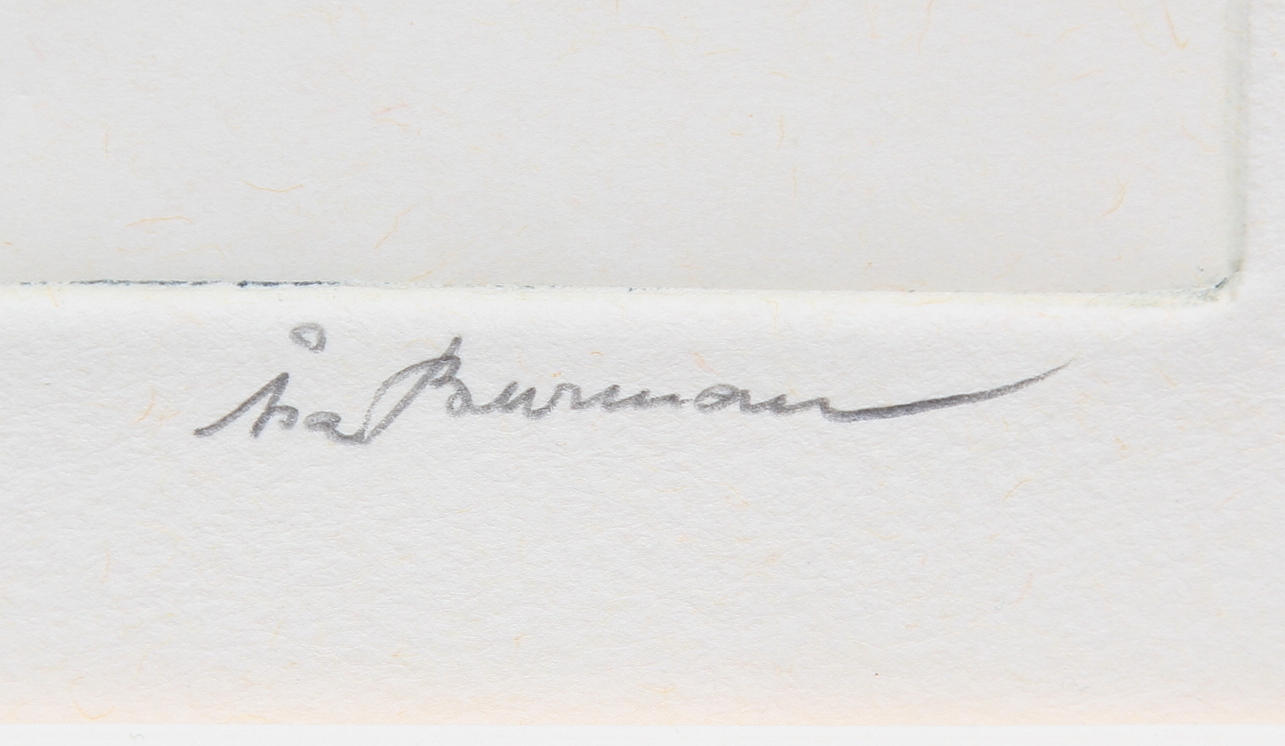 Åsa Burman